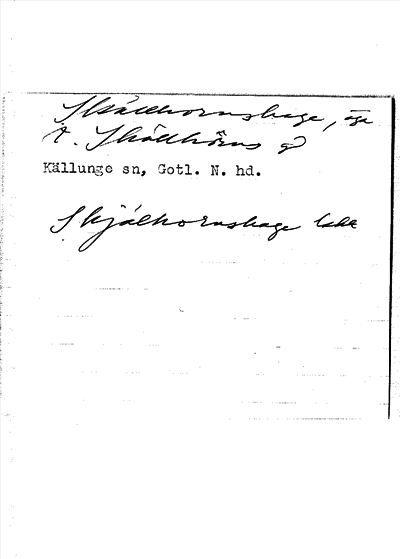 Skällhornshage, äga
t. Skällhorns gd
Källunge sn, Gotl. N. hd.
Skjälhornshage